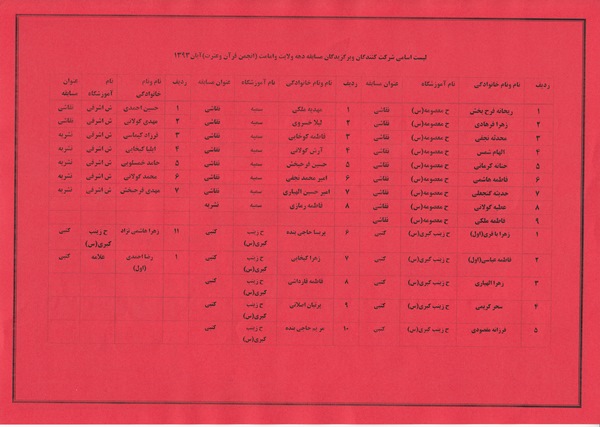 لیست اسامی شرکت کنندگان وبرگزیدگان مسابقه دهه ولایت وامامت (انجمن قرآن وعترت) آبان ۱۳۹۳
ردیف نام ونام خانوادگی نام آموزشگاه عنوان مسابقه ردیف نام ونام خانوادگی نام آموزشگاه عنوان مسابقه ردیف نام ونام خانوادگی نام آموزشگاه عنوان مسابقه
۱ ریحانه فرح بخش ح معصومه(س) نقاشی ۱ مهدیه ملکی سمیه نقاشی ۱ حسین احمدی ش اشرفی نقاشی
۲ زهرا فرهادی ح معصومه(س) نقاشی ۲ لیلا خسروی سمیه نقاشی ۲ مهدی گولانی ش اشرفی نقاشی
۳ محدثه نجفی ح معصومه(س) نقاشی ۳ فاطمه سمیه نقاشی ۳ فرزاد ش اشرفی نشریه
۴ الهام شمس ح معصومه(س) نقاشی ۴ آرش گولانی سمیه نقاشی ۴ ایلیا گیخایی ش اشرفی نشریه
۵ حنانه کرمانی ح معصومه(س) نقاشی ۵ حسین فرحبخش سمیه نقاشی ۵ حامد ش اشرفی نشریه
۶ فاطمه هاشمی ح معصومه(س) نقاشی ۶ امیر محمد نجفی سمیه نقاشی ۶ محمد گولانی ش اشرفی نشریه
۷ حدیثه ح معصومه(س) نقاشی ۷ امیر حسین الهیاری سمیه نقاشی ۷ مهدی فرحبخش ش اشرفی نشریه
۸ عطیه گولانی ح معصومه(س) نقاشی ۸ فاطمه رمازی سمیه نشریه
۹ فاطمه ملکی ح معصومه(س) نقاشی
۱ زهرا باقری(اول) ح زینب کبری(س) کتبی ۶ پریسا حاجی بنده ح زینب کبری(س) کتبی ۱۱ زهرا هاشمی نژاد ح زینب کبری(س) کتبی
۲ فاطمه عباسی(اول) ح زینب کبری(س) کتبی ۷ زهرا گیخایی ح زینب کبری(س) کتبی ۱ رضا احمدی (اول) علامه کتبی
۳ زهرا الهیاری ح زینب کبری(س) کتبی ۸ فاطمه ح زینب کبری(س) کتبی
۴ سحر کریمی ح زینب کبری(س) کتبی ۹ پرنیان اصلانی ح زینب کبری(س) کتبی
۵ فرزانه مقصودی ح زینب کبری(س) کتبی ۱۰ مریم حاجی بنده ح زینب کبری(س) کتبی